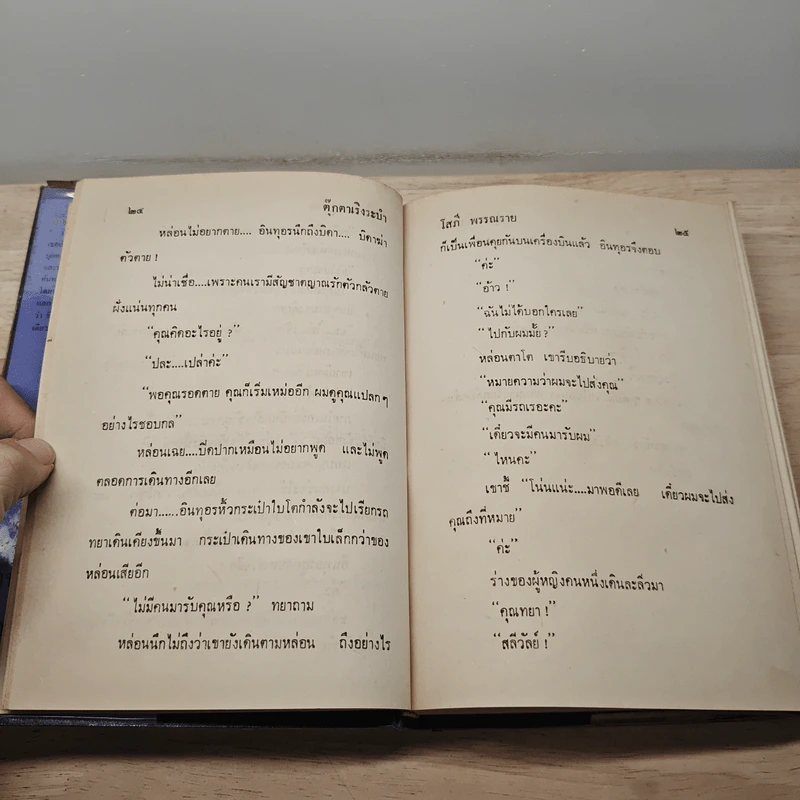 ๒๔
ตุ๊กตาเริงระบำ
หล่อนไม่อยากตาย.... อินทุอรนึกถึงบิดา.... บิดาฆ่า
ตัวตาย !
ไม่น่าเชื่อ....เพราะคนเรามีสัญชาตญาณรักตัวกลัวตาย
ฝังแน่นทุกคน
“คุณคิดอะไรอยู่ ?”
“ปละ....เปล่าค่ะ”
“พอคุณรอดตาย คุณก็เริ่มเหม่ออีก ผมดูคุณแปลกๆ
อย่างไรชอบกล”
หล่อนเฉย....บีดปากเหมือนไม่อยากพูด และไม่พูด
ตลอดการเดินทางอีกเลย
ต่อมา......อินทุอรหิ้วกระเป๋าใบโตกำลังจะไปเรียกรถ
ทยาเดินเคียงขึ้นมา กระเป๋าเดินทางของเขาใบเล็กกว่าของ
หล่อนเสียอีก
“ไม่มีคนมารับคุณหรือ ?” ทยาถาม
หล่อนนึกไม่ถึงว่าเขายังเดินตามหล่อน ถึงอย่างไร
โสภี พรรณราย
๒๕
ก็เป็นเพื่อนคุยกันบนเครื่องบินแล้ว อินทุอรจึงตอบ
“ค่ะ”
“อ้าว !”
“ฉันไม่ได้บอกใครเลย”
“ไปกับผมมั้ย ?”
หล่อนตาโต เขารีบอธิบายว่า
“หมายความว่าผมจะไปส่งคุณ”
“คุณมีรถเรอะคะ”
“เดี๋ยวจะมีคนมารับผม”
“ไหนคะ”
เขาชี้ “โน่นแน่ะ....มาพอดีเลย เดี๋ยวผมจะไปส่ง
คุณถึงที่หมาย”
“ค่ะ”
ร่างของผู้หญิงคนหนึ่งเดินละลิ่วมา
“คุณทยา !”
“สลีวัลย์ !”